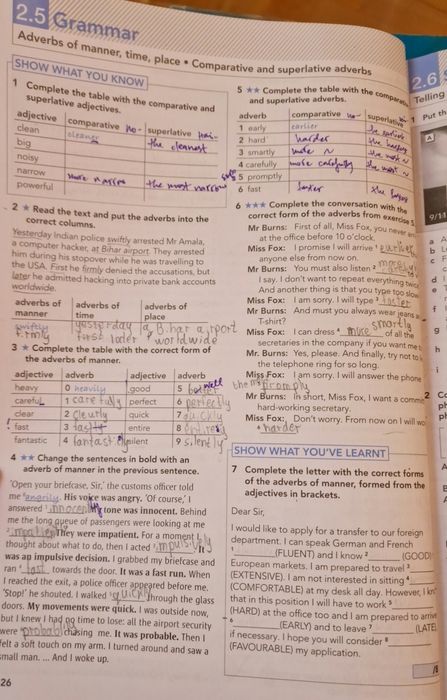 2.5 Grammar
Adverbs of manner, time, place • Comparative and superlative adverbs
SHOW WHAT YOU KNOW
1 Complete the table with the comparative and
superlative adjectives.
adjective comparative superlative
clean cleaner the cleanest
big
noisy
narrow more narrow the most narrow
powerful
2 ★ Read the text and put the adverbs into the
correct columns.
Yesterday Indian police swiftly arrested Mr Amala,
a computer hacker, at Bihar airport. They arrested
him during his stopover while he was travelling to
the USA. First he firmly denied the accusations, but
later he admitted hacking into private bank accounts
worldwide.
adverbs of manner adverbs of time adverbs of place
swiftly yesterday a Bihar airport
firmly first later worldwide
3 ★ Complete the table with the correct form of
the adverbs of manner.
adjective adverb adjective adverb
heavy 0 heavily good 5 well
careful 1 carefully perfect 6 perfectly
clear 2 clearly quick 7
! fast 3 fast entire 8
fantastic 4 silent 9 silently
4 ★★ Change the sentences in bold with an
adverb of manner in the previous sentence.
'Open your briefcase, Sir,' the customs officer told
me angrily. His voice was angry. 'Of course,' I
answered tone was innocent. Behind
me the long queue of passengers were looking at me
They were impatient. For a moment I
thought about what to do, then I acted It
was an impulsive decision. I grabbed my briefcase and
ran fast towards the door. It was a fast run. When
I reached the exit, a police officer appeared before me.
'Stop!' he shouted. I walked through the glass
doors. My movements were quick. I was outside now,
but I knew I had no time to lose: all the airport security
were chasing me. It was probable. Then I
felt a soft touch on my arm. I turned around and saw a
small man. ... And I woke up.
26
5 ★★ Complete the table with the comparative
and superlative adverbs.
adverb comparative superlative
1 early earlier the earliest
2 hard harder the hardest
3 smartly more the most
4 carefully more carefully the most
5 promptly
6 fast faster
6 ★★★ Complete the conversation with the
correct form of the adverbs from exercise 5
Mr Burns: First of all, Miss Fox, you never
at the office before 10 o'clock.
Miss Fox: I promise I will arrive
anyone else from now on.
Mr Burns: You must also listen
I say. I don't want to repeat everything twice
And another thing is that you type too slow
Miss Fox: I am sorry. I will type faster
Mr Burns: And must you always wear jeans
T-shirt?
Miss Fox: I can dress more smartly of all the
secretaries in the company if you want me
Mr. Burns: Yes, please. And finally, try not to
the telephone ring for so long.
Miss Fox: I am sorry. I will answer the phone
Mr Burns: In short, Miss Fox, I want a
hard-working secretary.
Miss Fox: Don't worry. From now on I will
harder
SHOW WHAT YOU'VE LEARNT
7 Complete the letter with the correct forms
of the adverbs of manner, formed from the
adjectives in brackets.
Dear Sir,
I would like to apply for a transfer to our foreign
department. I can speak German and French
1 (FLUENT) and I know 2 (GOOD)
European markets. I am prepared to travel 3
(EXTENSIVE). I am not interested in sitting 4
(COMFORTABLE) at my desk all day. However, I
that in this position I will have to work 5
(HARD) at the office too and I am prepared to arrive
6 (EARLY) and to leave 7 (LATE)
if necessary. I hope you will consider 8
(FAVOURABLE) my application.
/8
2.6
Telling
1 Put th
A
9/11